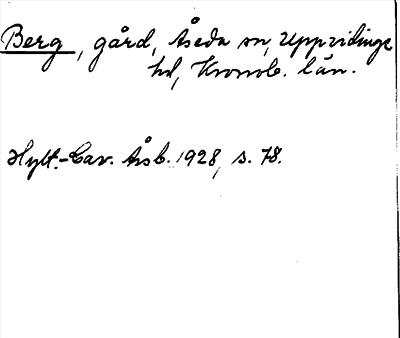 Berg, gård, Åseda sn, Uppvidinge
hd, Kronob. län.
Hylt.-Cav. Årsb. 1928, s. 78.